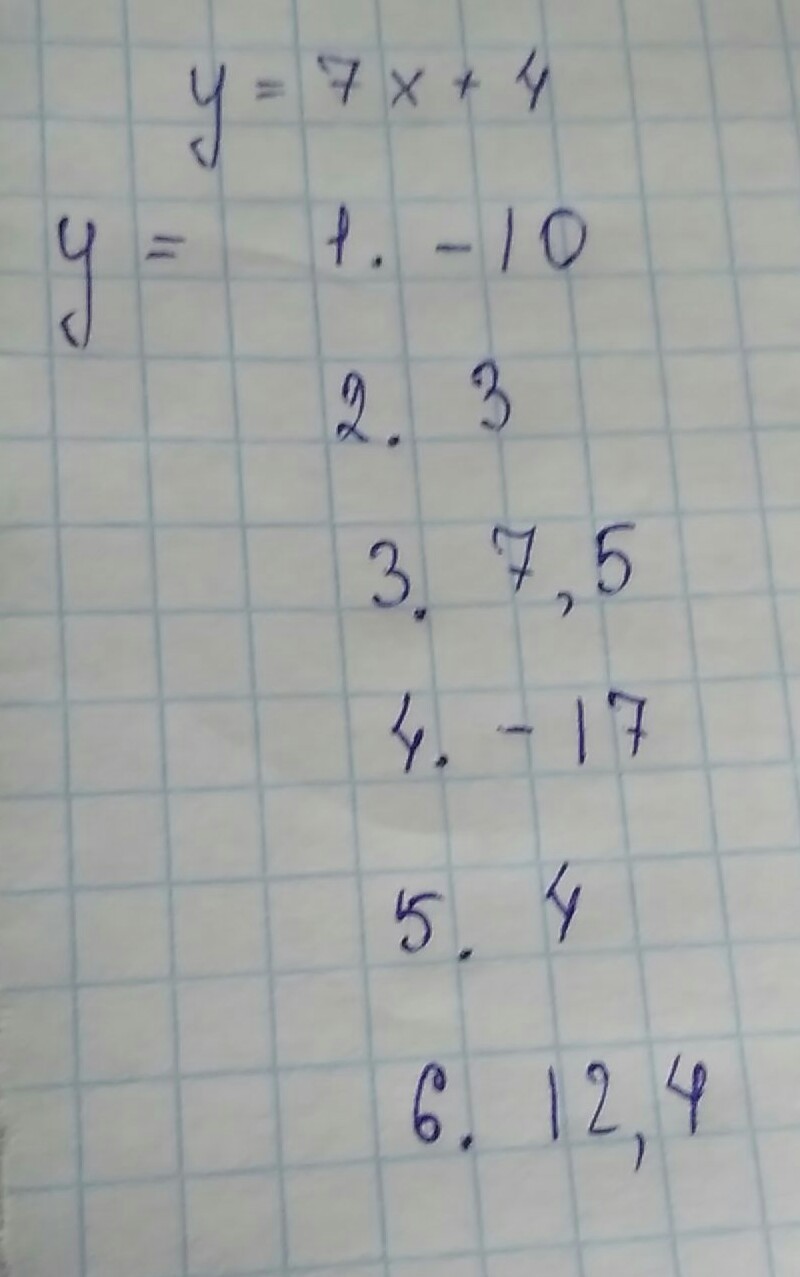 y = 7x + 4
y = 1. -10
2. 3
3. 7,5
4. -17
5. 4
6. 12,4